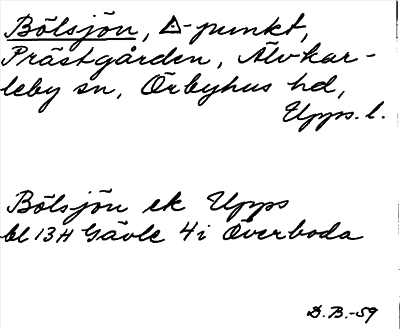 Bölsjön, △-punkt,
Prästgården, Älvkar-
leby sn, Örbyhus hd,
Upps. l.
Bölsjön ek Upps
bl 13H Gävle 4i Överboda
D.B.-59